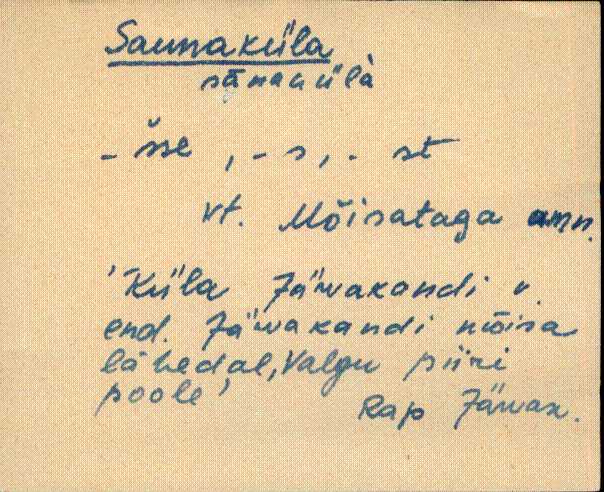 Saunaküla
sānakülà
- sse, - s, - st
vt. Mõisataga amn.
'Küla Järvakandi v.
end. Järvakandi mõisa
lähedal, Valgu piiri
poole'
Rap Järvak.